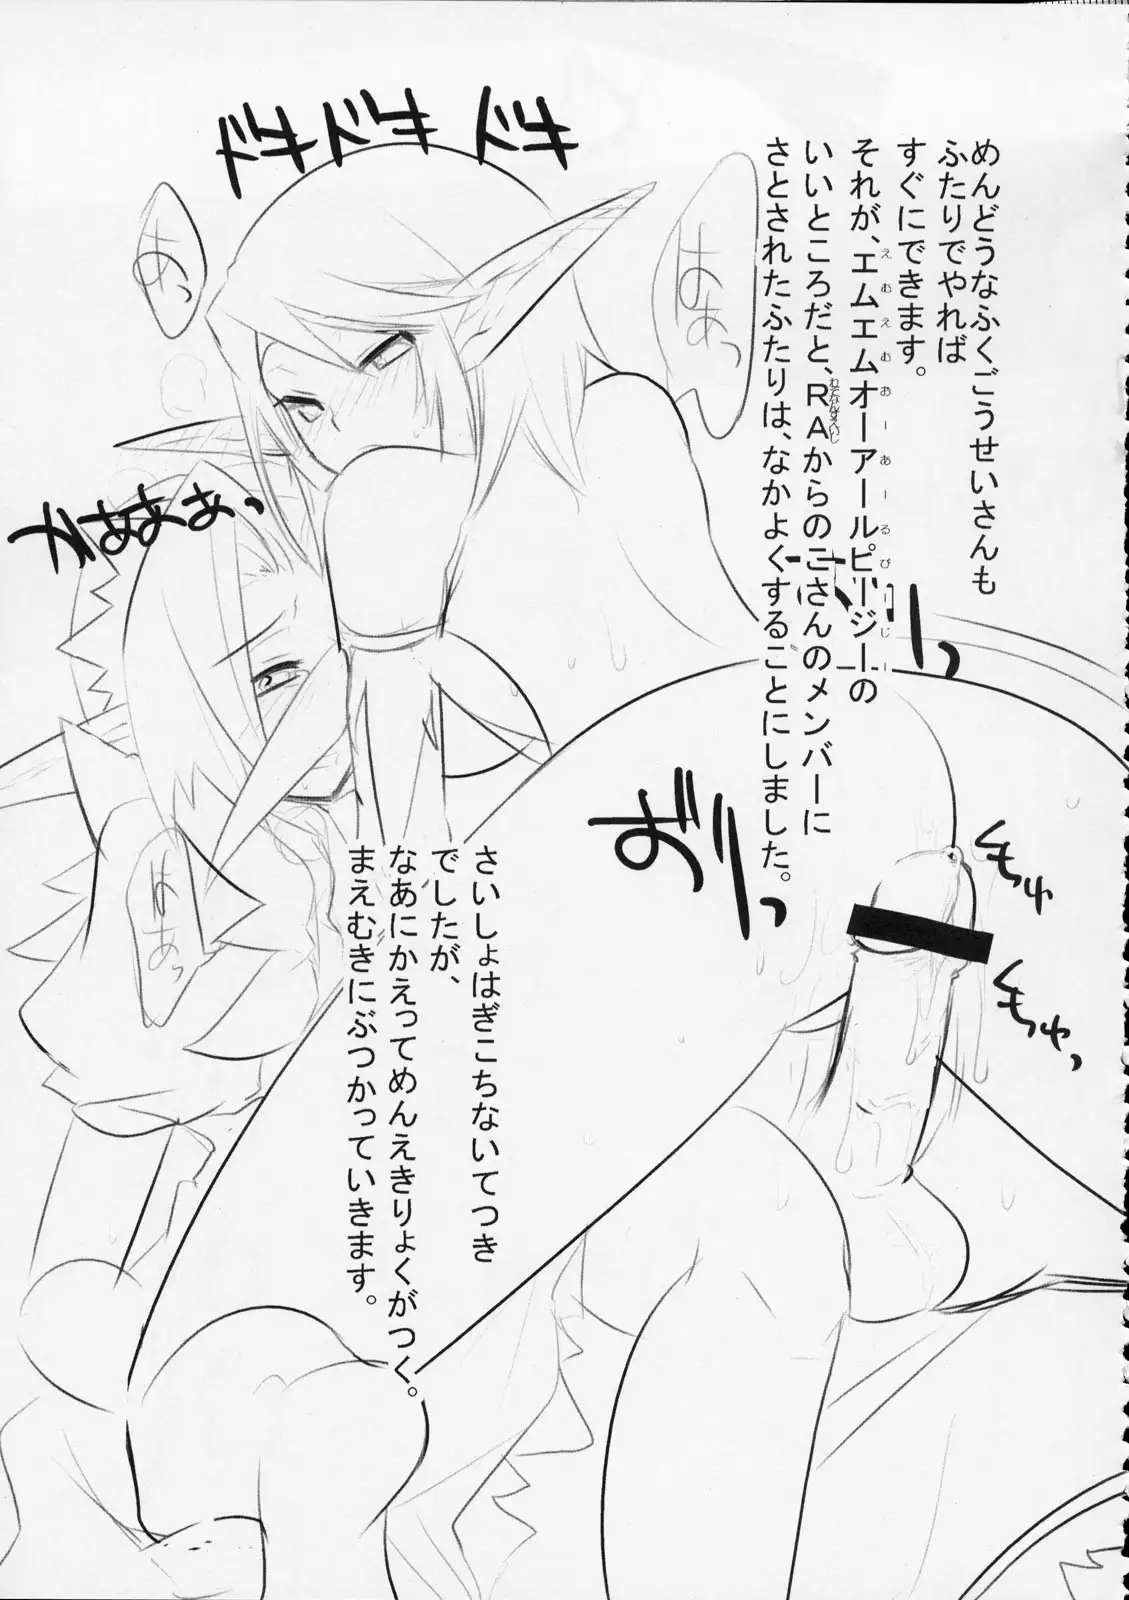 めんどうなふくごうせいさんも
ふたりでやれば
すぐにできます。
それが、エムエムオーアールピージーの
えむえむおーあーるぴーじー
いいところだと、RAからのこさんのメンバーに
さとされたふたりは、なかよくすることにしました。
さいしょはぎこちないてつき
でしたが、
なあにかえってめんえきりょくがつく。
まえむきにぶつかっていきます。
ギッ
ギッギッ
あっ
はあっ
はあっ
くちゅ